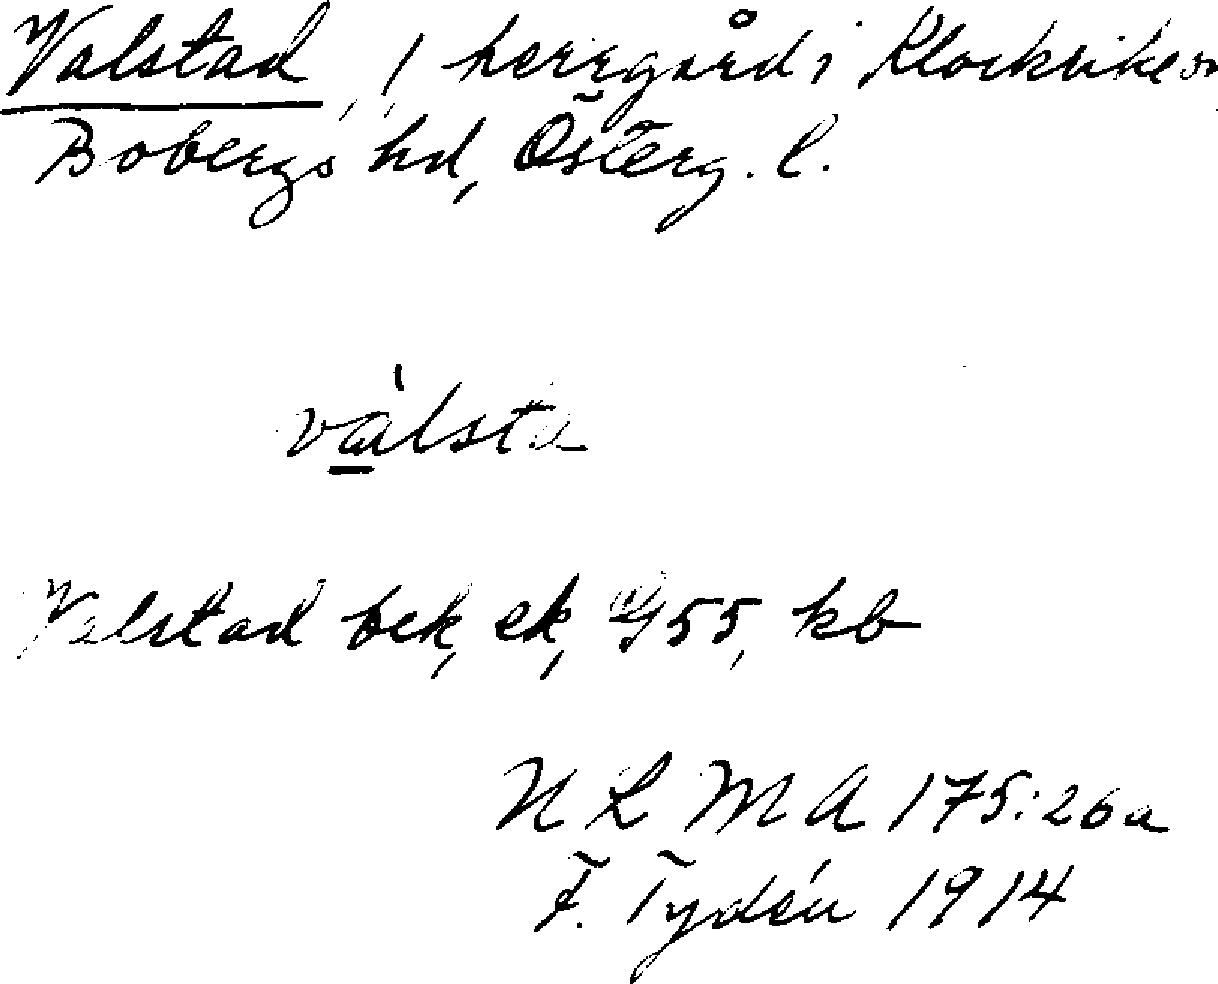 Valstad, 1 herrgård i Klockrike sn,
Bobergs hd, Österg. l.
válsta
Valstad bek, ek, G 55, kb
ULMA 175:26a
F. Tydén 1914